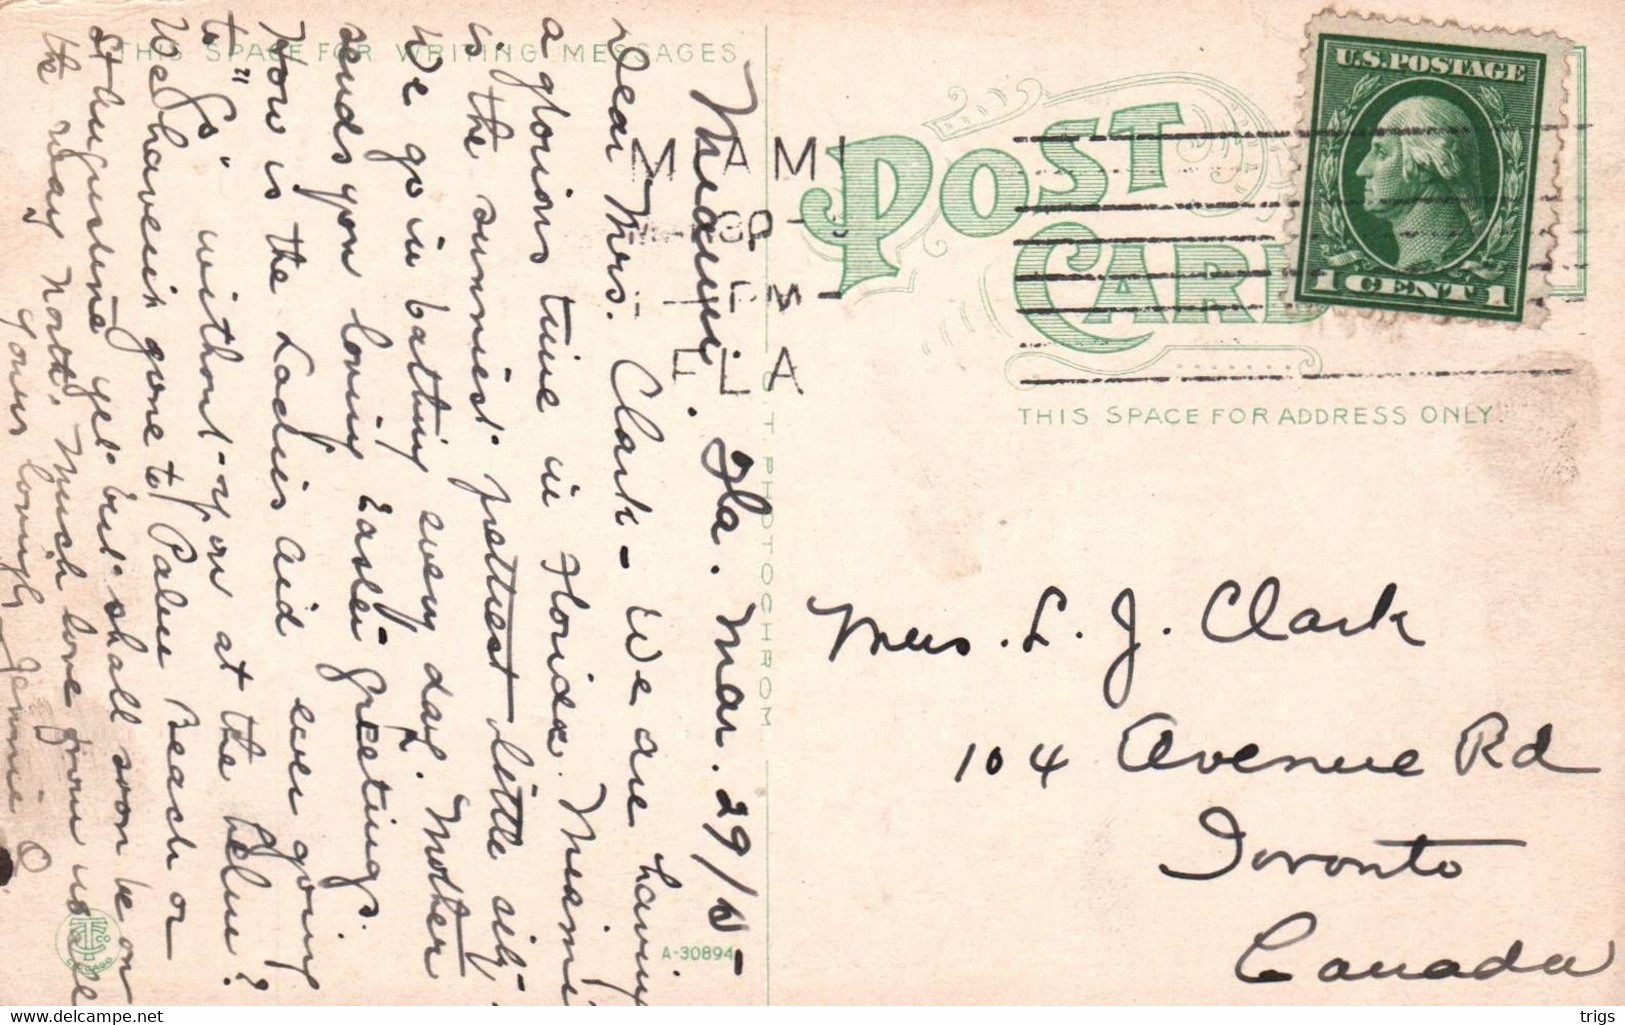 THIS SPACE FOR WRITING MESSAGES
Miami. Fla. Mar. 29/15-
Dear Mrs. Clark - We are having
a glorious time in Florida. Miami
is the sunniest prettiest little city.
We go in bathing every day. Mother
sends you loving Easter Greetings.
How is the Ladies Aid ever going
to "Go" without you at the Helm?
We haven't gone to Palm Beach or
St Augustine yet but shall soon be on
the way North. Much love from us all
Yours lovingly Jennie O
MIAMI
FLA
POST CARD
U.S. POSTAGE
1 CENT 1
THIS SPACE FOR ADDRESS ONLY.
C T PHOTOCHROM
Mrs. L. J. Clark
104 Avenue Rd
Toronto
Canada
A-30894
CHICAGO
delcampe.net
trigs